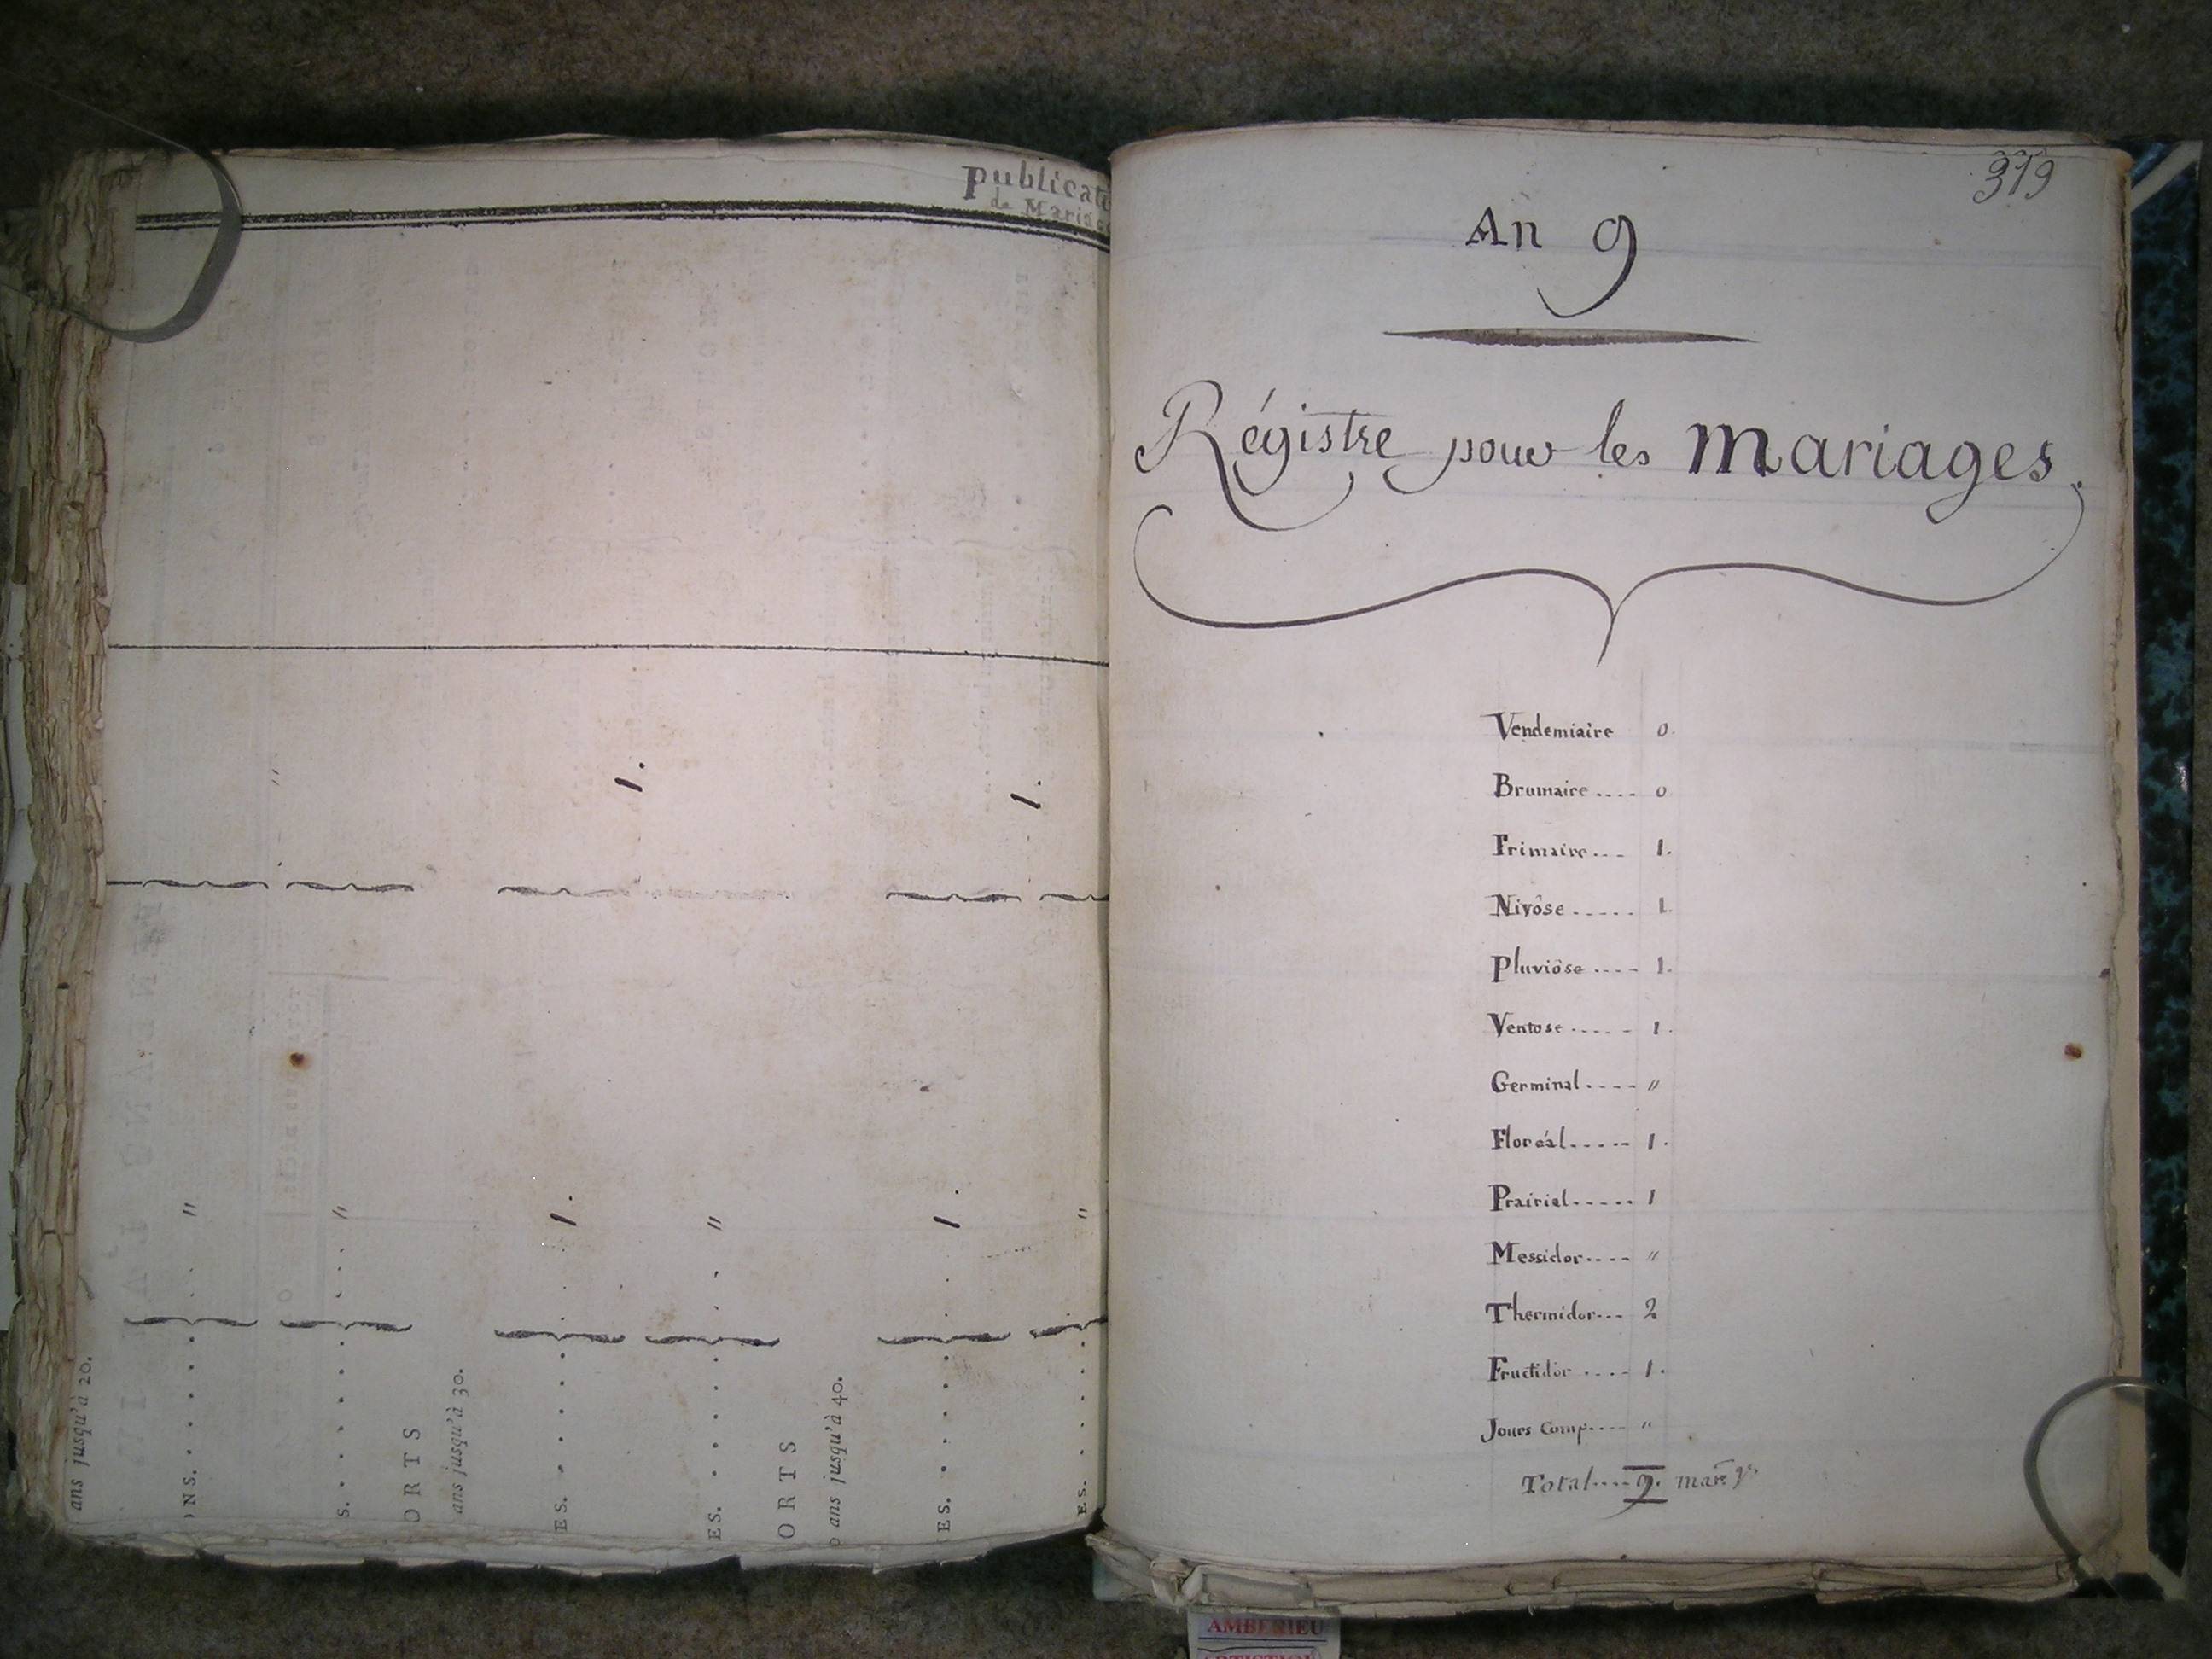 publicat
de Maria
"
1.
1.
"
"
1.
"
1.
"
ans jusqu'à 20.
ONS.
S.
ORTS
ans jusqu'à 30.
ES.
ES.
ORTS
ans jusqu'à 40.
ES.
ES.
319
An 9
Régistre pour les Mariages.
Vendemiaire 0.
Brumaire .... 0
Frimaire... 1.
Nivôse ..... 1.
Pluviôse .... 1.
Ventose ..... 1.
Germinal .... "
Floréal ..... 1.
Prairial ..... 1
Messidor .... "
Thermidor... 2
Fructidor .... 1.
Jours Comp.... "
Total .... 9.
AMBERIEU